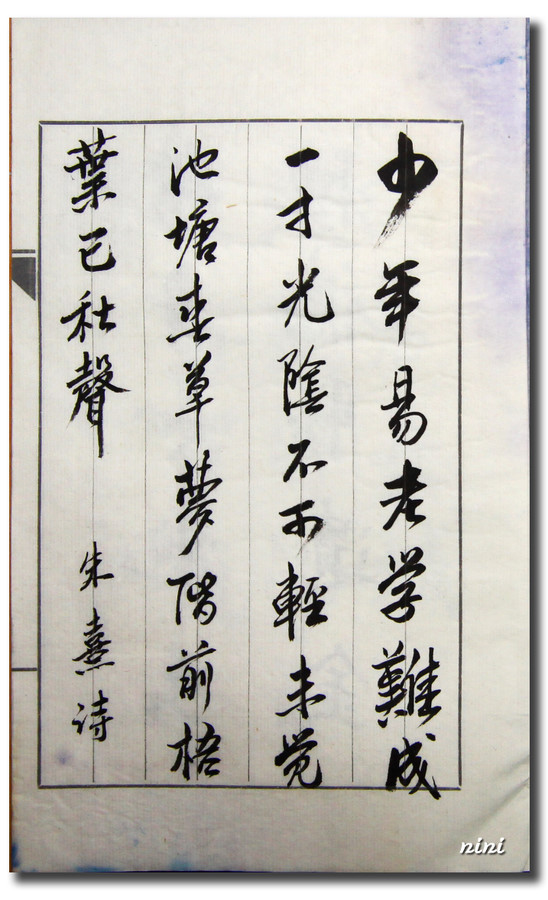 少年易老学難成
一寸光陰不可輕未觉
池塘春草夢階前梧
葉已秋聲
朱熹诗
nini